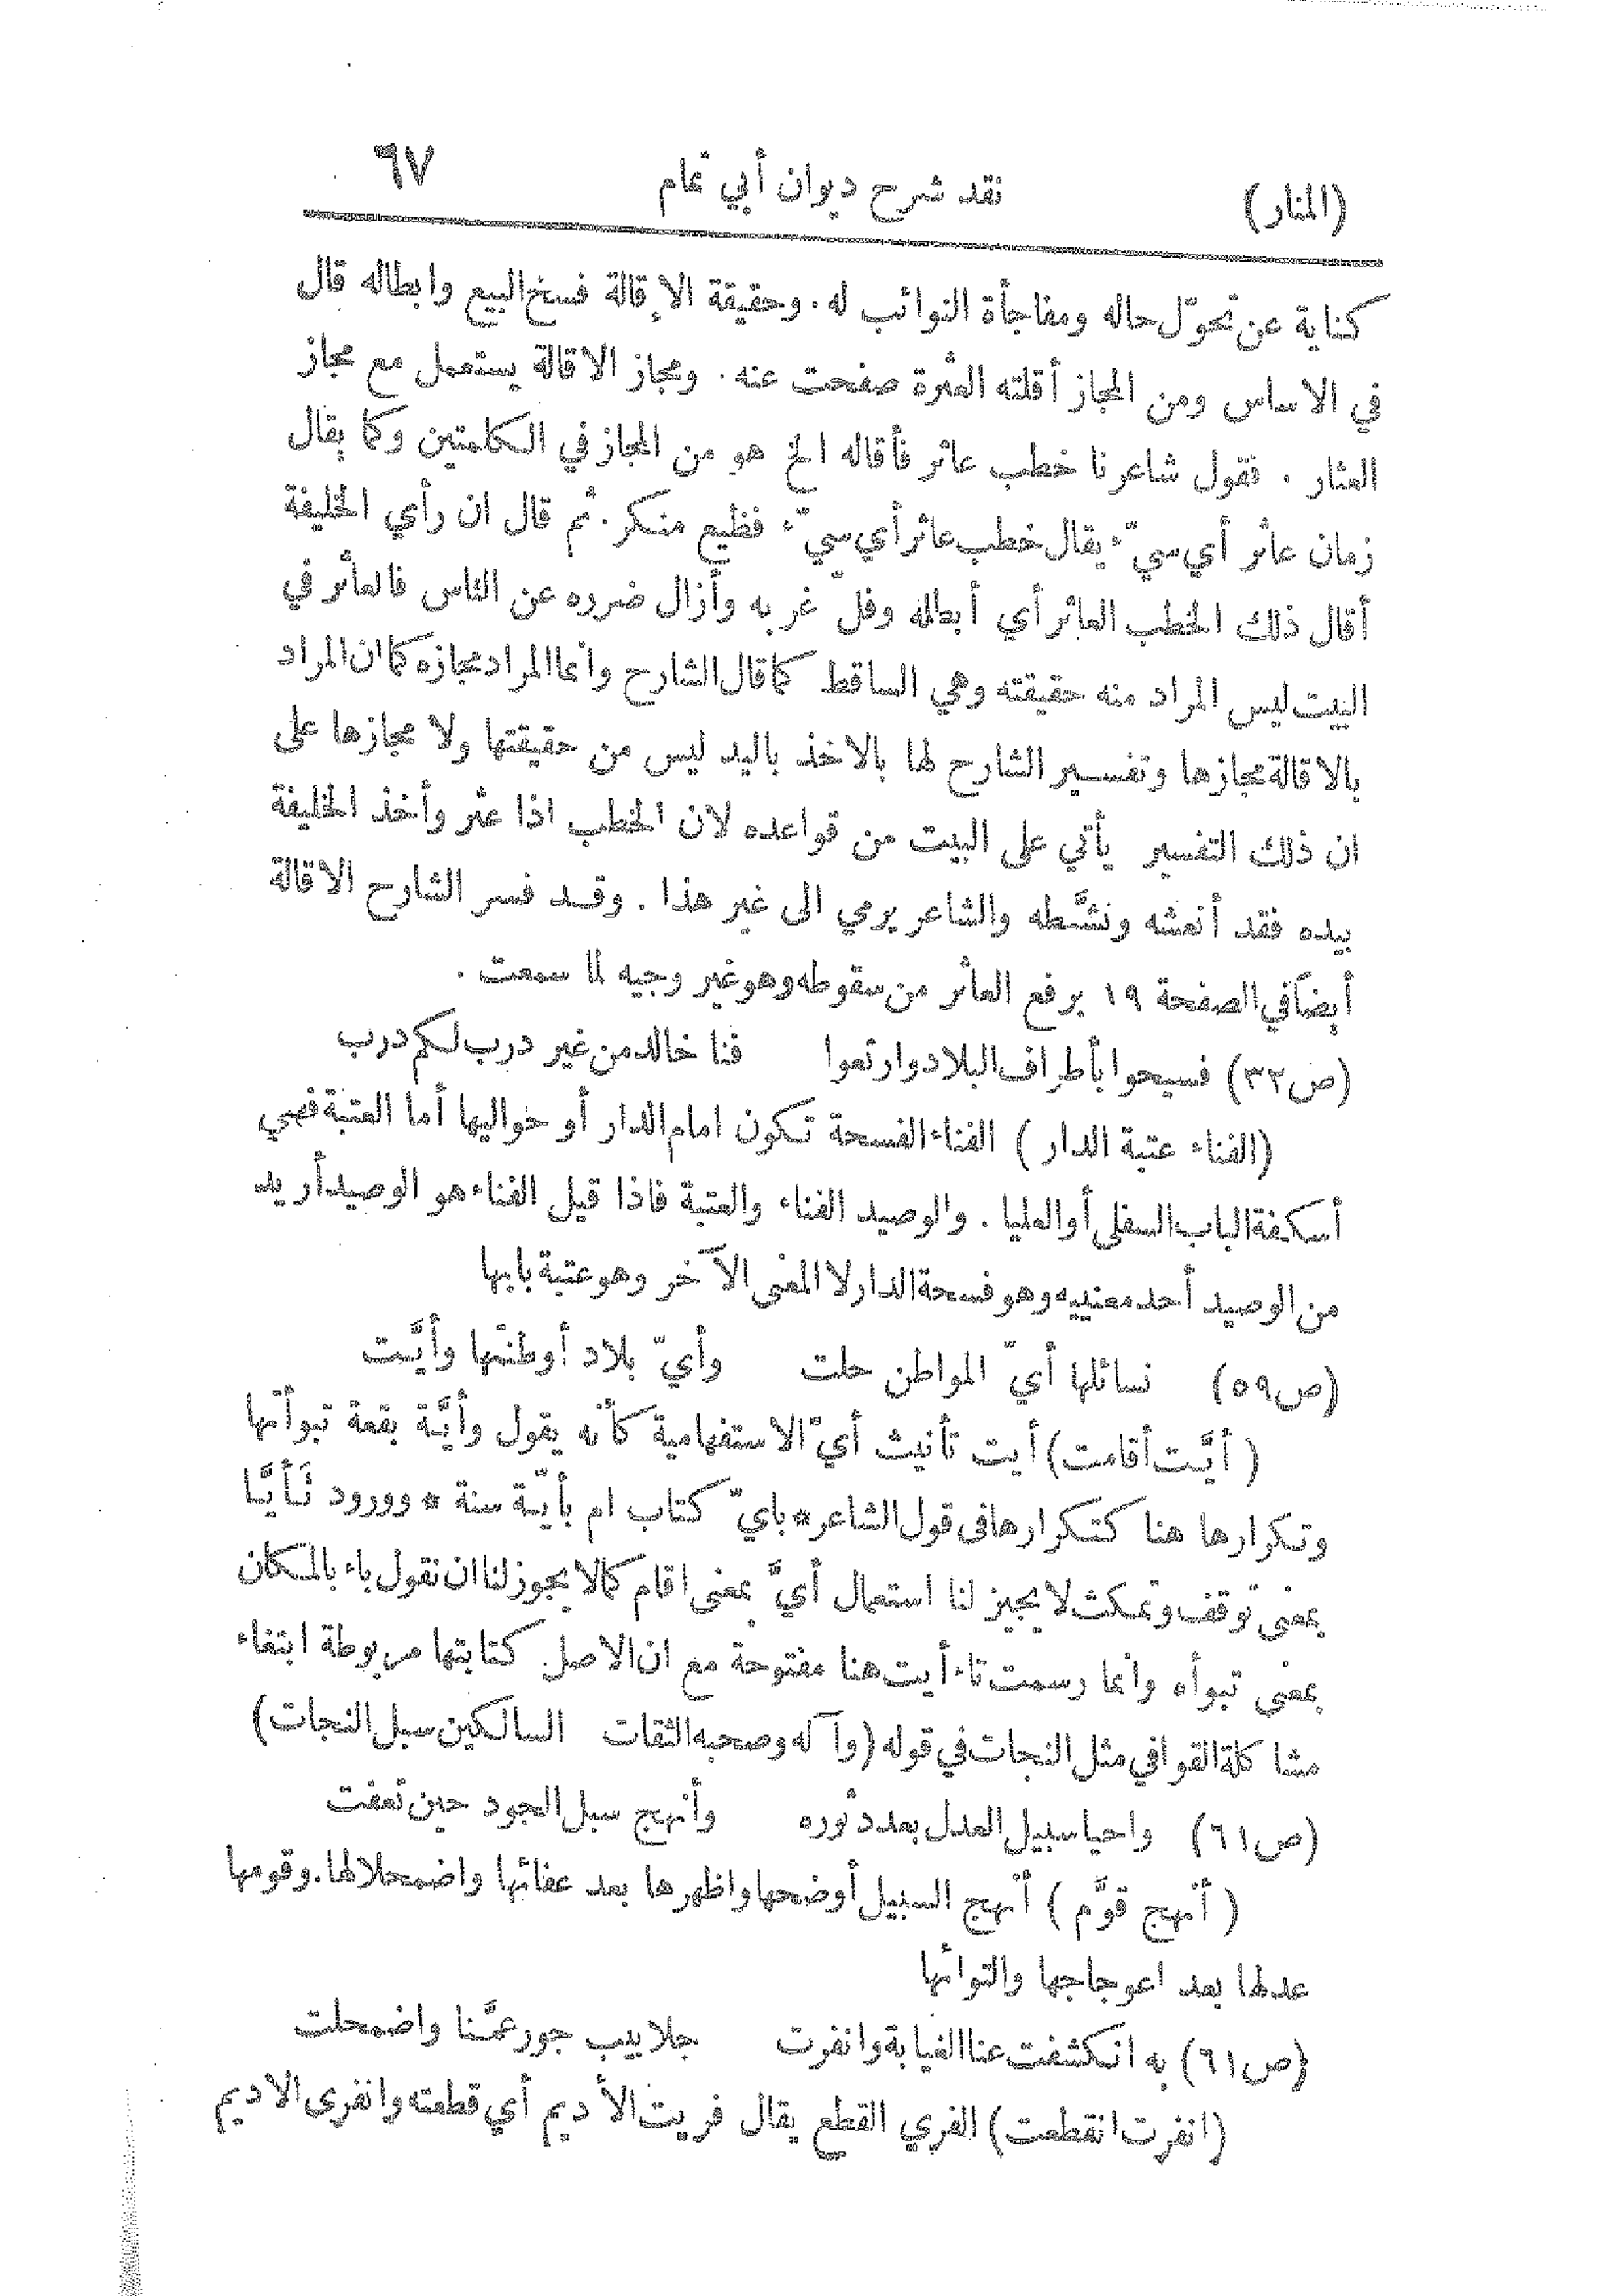 (المنار) نقد شرح ديوان أبي تمام ٦٧
كناية عن تحوّل حاله ومفاجأة النوائب له. وحقيقة الإقالة فسخ البيع وابطاله قال
في الاساس ومن المجاز أقلته العثرة صفحت عنه. ومجاز الاقالة يستعمل مع مجاز
العثار. فقول شاعرنا خطب عاثر فأقاله الخ هو من المجاز في الكلمتين وكما يقال
زمان عاثر أي سيّء يقال خطب عاثر أي سيّء فظيع منكر. ثم قال ان رأي الخليفة
أقال ذلك الخطب العاثر أي أبطله وفلّ غربه وأزال ضرره عن الناس فالعاثر في
البيت ليس المراد منه حقيقته وهي الساقط كما قال الشارح وانما المراد مجازه كما ان المراد
بالاقالة مجازها وتفسير الشارح لها بالاخذ باليد ليس من حقيقتها ولا مجازها على
ان ذلك التفسير يأتي على البيت من قواعده لان الخطب اذا عثر وأخذ الخليفة
بيده فقد أنعشه ونشَّطه والشاعر يرمي الى غير هذا. وقد فسر الشارح الاقالة
أيضاً في الصفحة ١٩ برفع العاثر من سقوطه وهو غير وجيه لما سمعت.
(ص٣٢) فسيحوا بأطراف البلاد وارتعوا فنا خالد من غير درب لكم درب
(الفناء عتبة الدار) الفناء الفسحة تكون امام الدار أو حواليها أما العتبة فهي
أسكفة الباب السفلى أو العليا. والوصيد الفناء والعتبة فاذا قيل الفناء هو الوصيد أريد
من الوصيد أحد معنييه وهو فسحة الدار لا المعنى الآخر وهو عتبة بابها
(ص٥٩) نسائلها أيّ المواطن حلت وأيّ بلاد أوطنتها وأيَّت
(أيَّت أقامت) أيت تأنيث أيّ الاستفهامية كأنه يقول وأيَّة بقعة تبوأتها
وتكرارها هنا كتكرارها في قول الشاعر * باي كتاب ام بأيّة سنة * وورود تَأَيَّا
بمعنى توقف وتمكث لا يجيز لنا استعمال أيَّ بمعنى اقام كما لا يجوز لنا ان نقول باء بالمكان
بمعنى تبوأه وانما رسمت تاء أيت هنا مفتوحة مع ان الاصل كتابتها مربوطة ابتغاء
مشاكلة القوافي مثل النجات في قوله (وآله وصحبه الثقات السالكين سبل النجات)
(ص٦١) واحيا سبيل العدل بعد دثوره وأنهج سبل الجود حين تعفت
(أنهج قوَّم) أنهج السبيل أوضحها واظهرها بعد عفائها واضمحلالها. وقومها
عدلها بعد اعوجاجها والتوائها
(ص٦١) به انكشفت عنا الغيابة وانفرت جلابيب جور عمَّنا واضمحلت
(انفرت انقطعت) الفري القطع يقال فريت الأديم أي قطعته وانفرى الاديم